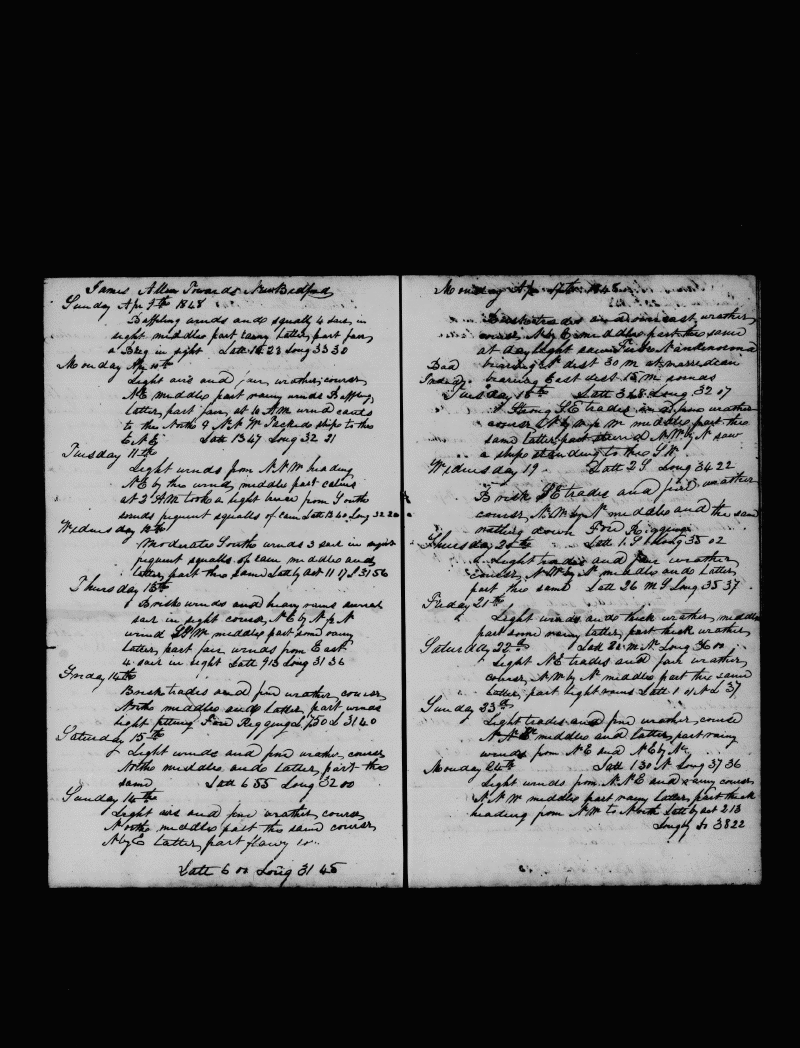 James Allen Towards New Bedford
Sunday Apr 9th 1848
Baffling winds and squally 4 sail in
sight middle part rainy Latter part fair
a Brig in sight Latt 14 23 Long 33 30
Monday Apr 10th
Light airs and fair weather course
NE middle part rainy winds Baffling
latter part fair at 4 AM wind cants
to the Northd & NNW Tacked ships to the
ENE Latt 13 47 Long 32 31
Tuesday 11th
Light winds from NNW heading
NE by the wind middle part calms
at 2 AM took a light breeze from South
frequent squalls of rain Latt 13 40 Long 32 20
Wednesday 12th
Moderate South winds 3 sail in sight
frequent squalls of rain middle and
latter part the same Latt by act 11 17 L 31 56
Thursday 13th
Brisk winds and heavy rains
sail in sight course NE by N
wind middle part some rainy
latter part fair winds from East
4 sail in sight Latt 9 13 Long 31 36
Friday 14th
Brisk trades and fine weather course
North middle and Latter part winds
light fitting Fore Rigging L 7 50 L 31 40
Saturday 15th
Light winds and fine weather course
North middle and Latter part the
same Latt 6 55 Long 32 00
Sunday 16th
Light airs and fine weather course
North middle part the same course
N by E latter part flawy
Latt 6 00 Long 31 45
Monday Apr 17th 1848
Brisk trades and overcast weather
course N by E middle part the same
at daylight saw
bearing N dist 30 m at meredean
Bad bearing East dist 15 m
Tuesday 18th Latt 3 48 Long 32 07
Strong SE trades and fine weather
course middle part the
same latter part NW by N saw
a ship standing to the SW
Wednesday 19 Latt 2 S Long 34 22
Brisk SE trades and fine weather
course NW by N middle and the same
rattling down Fore Rigging
Thursday 20th Latt 1 S Long 35 02
Light trades and fine weather
course NW by N middle and Latter
part the same Latt 26 m S Long 35 37
Friday 21th
Light winds and thick weather middle
part some rainy latter part thick weather
Saturday 22th Latt 22 m N Long 36 00
Light NE trades and fair weather
course NW by N middle part the same
latter part light rains Latt 1 01 N L 37
Sunday 23th
Light trades and fine weather course
NNW middle and Latter part rainy
winds from NE and NE by N
Monday 24th Latt 1 30 N Long 37 36
Light winds from NNE and rainy course
NNW middle part rainy Latter part thick
heading from NW to North Latt by act 2 13
Long by Do 38 22